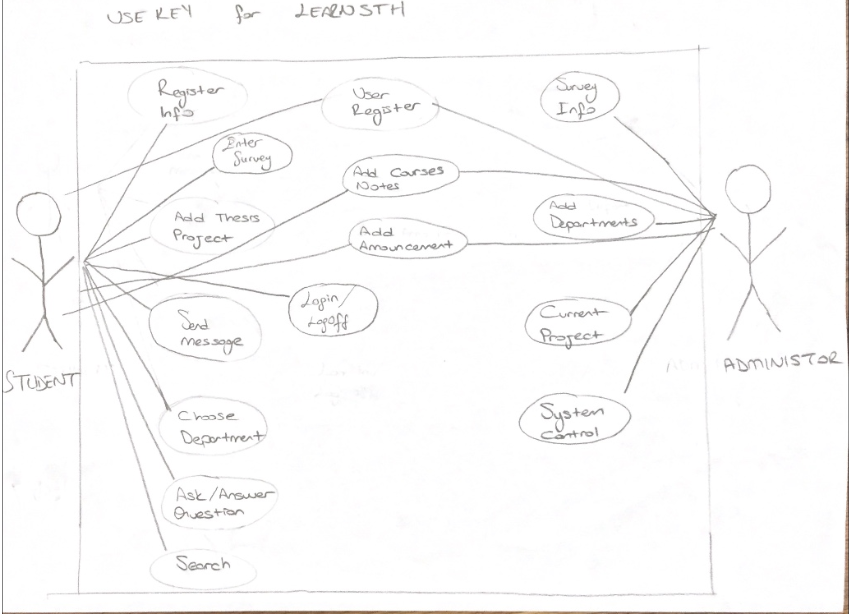 USE KEY for LEARNSTH
Register
Info
User
Register
Survey
Info
Enter
Survey
Add Courses
Notes
Add Thesis
Project
Add
Anouncement
Add
Departments
Login/
LogOff
Send
message
Current
Project
STUDENT
ADMINISTOR
Choose
Department
System
Control
Ask/Answer
Question
Search